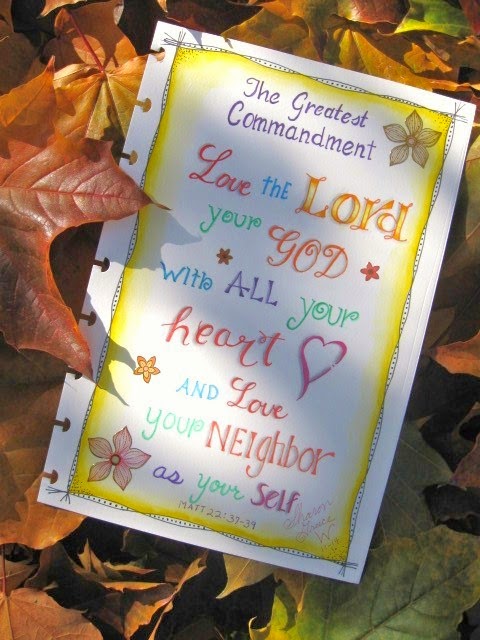 The Greatest
Commandment
Love THE LORD
your GOD
WITH ALL your
heart
AND Love
your NEIGHBOR
as your SELF
MATT 22:37-39
Sharon